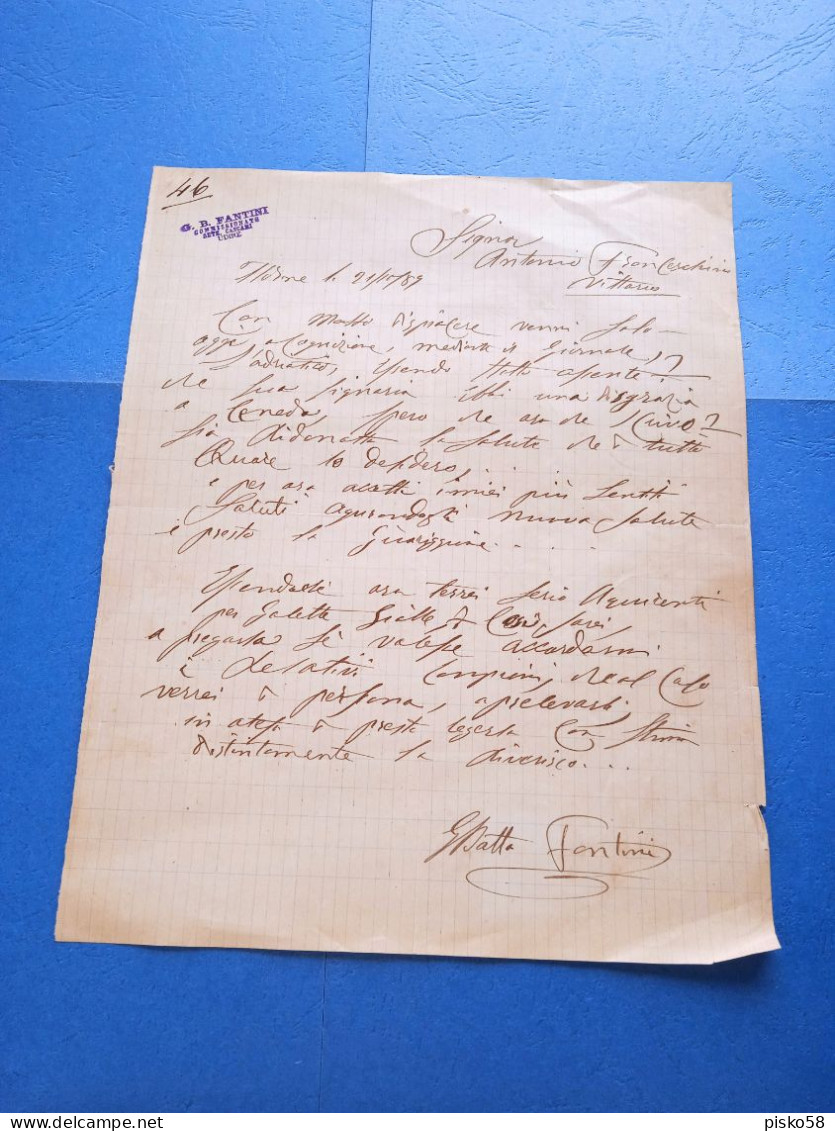 46
G. B. FANTINI
COMMISSIONATO
SETE, CASCAMI
UDINE
Signor
Antonio Franceschini
Vittorio
Udine li 21/ /89
Con molto dispiacere venni solo
oggi a cognizione, mediante il Giornale,
l'adriatico, essendo stato assente
che sua Signoria ebbi una disgrazia
a Ceneda, spero che ora che scrivo
sia ridonata la salute che è tutto
quare lo desidero, . .
e per ora acetti i miei più sentiti
saluti agurandogli nuova salute
e presto la Guariggione . . . .
ora terrei serio
per Galette Gialle
a pregarla se valesse accordarmi
i relativi campioni, che al caso
verrei in persona, a prelevarli,
in atesa presto legerla con stima
distintamente la riverisco . . .
GBatta Fantini
pisko58